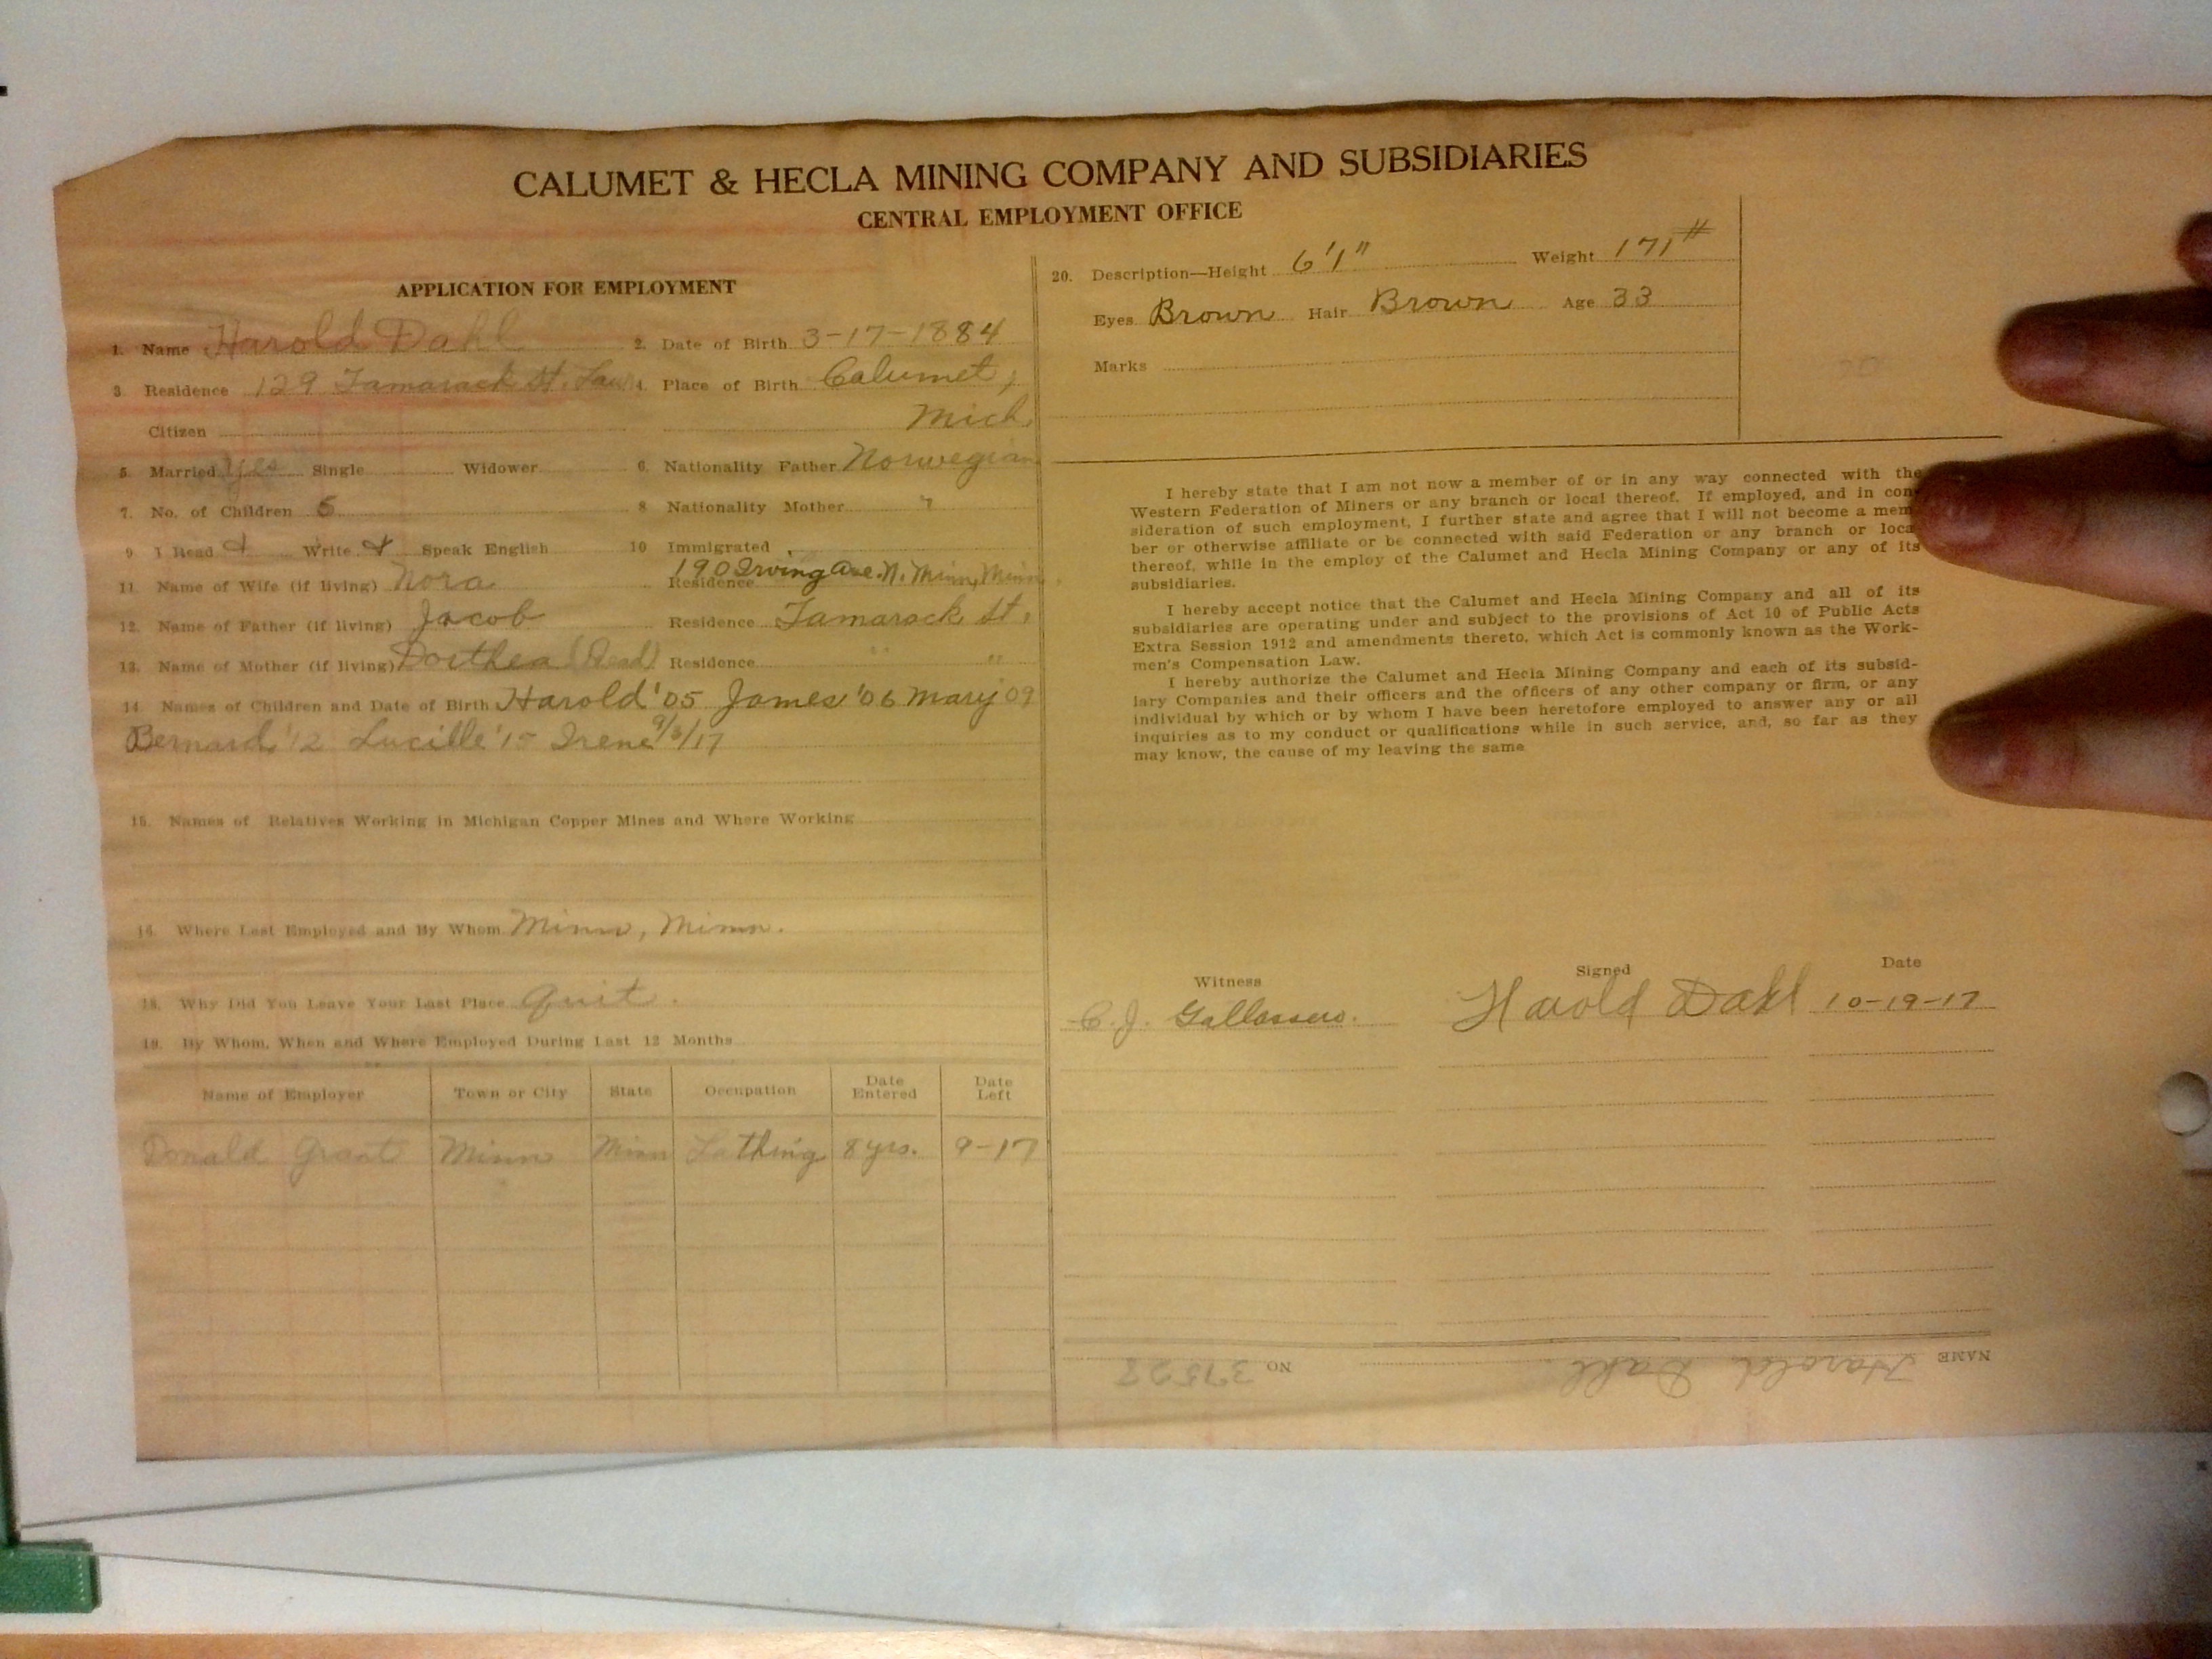 CALUMET & HECLA MINING COMPANY AND SUBSIDIARIES
CENTRAL EMPLOYMENT OFFICE
APPLICATION FOR EMPLOYMENT
1. Name Harold Dahl 2. Date of Birth 3-17-1884
3 Residence 129 Tamarack St. Lau 4. Place of Birth Calumet,
Citizen Mich.
5. Married Yes Single Widower 6. Nationality Father Norwegian
7. No. of Children 5 8 Nationality Mother "
9. I Read Write Speak English 10 Immigrated
11. Name of Wife (if living) Nora Residence 190 Irving Ave. N. Minn, Minn.
12. Name of Father (if living) Jacob Residence Tamarack St.
13. Name of Mother (if living) Dorthea (Dead) Residence " "
14. Names of Children and Date of Birth Harold '05 James '06 Mary 09
Bernard '12 Lucille '15 Irene 9/6/17
15. Names of Relatives Working in Michigan Copper Mines and Where Working
16. Where Last Employed and By Whom Minn, Minn.
18. Why Did You Leave Your Last Place Quit.
19. By Whom, When and Where Employed During Last 12 Months
Name of Employer Town or City State Occupation Date Entered Date Left
Donald Grant Minn Minn Lathing 8 yrs. 9-17
20. Description—Height 6'1" Weight 171#
Eyes Brown Hair Brown Age 33
Marks
I hereby state that I am not now a member of or in any way connected with the
Western Federation of Miners or any branch or local thereof. If employed, and in con-
sideration of such employment, I further state and agree that I will not become a mem-
ber or otherwise affiliate or be connected with said Federation or any branch or loca
thereof, while in the employ of the Calumet and Hecla Mining Company or any of its
subsidiaries.
I hereby accept notice that the Calumet and Hecla Mining Company and all of its
subsidiaries are operating under and subject to the provisions of Act 10 of Public Acts
Extra Session 1912 and amendments thereto, which Act is commonly known as the Work-
men's Compensation Law.
I hereby authorize the Calumet and Hecla Mining Company and each of its subsid-
iary Companies and their officers and the officers of any other company or firm, or any
individual by which or by whom I have been heretofore employed to answer any or all
inquiries as to my conduct or qualifications while in such service, and, so far as they
may know, the cause of my leaving the same
Witness Signed Date
C. J. Harold Dahl 10-19-17
NAME Harold Dahl NO 37528